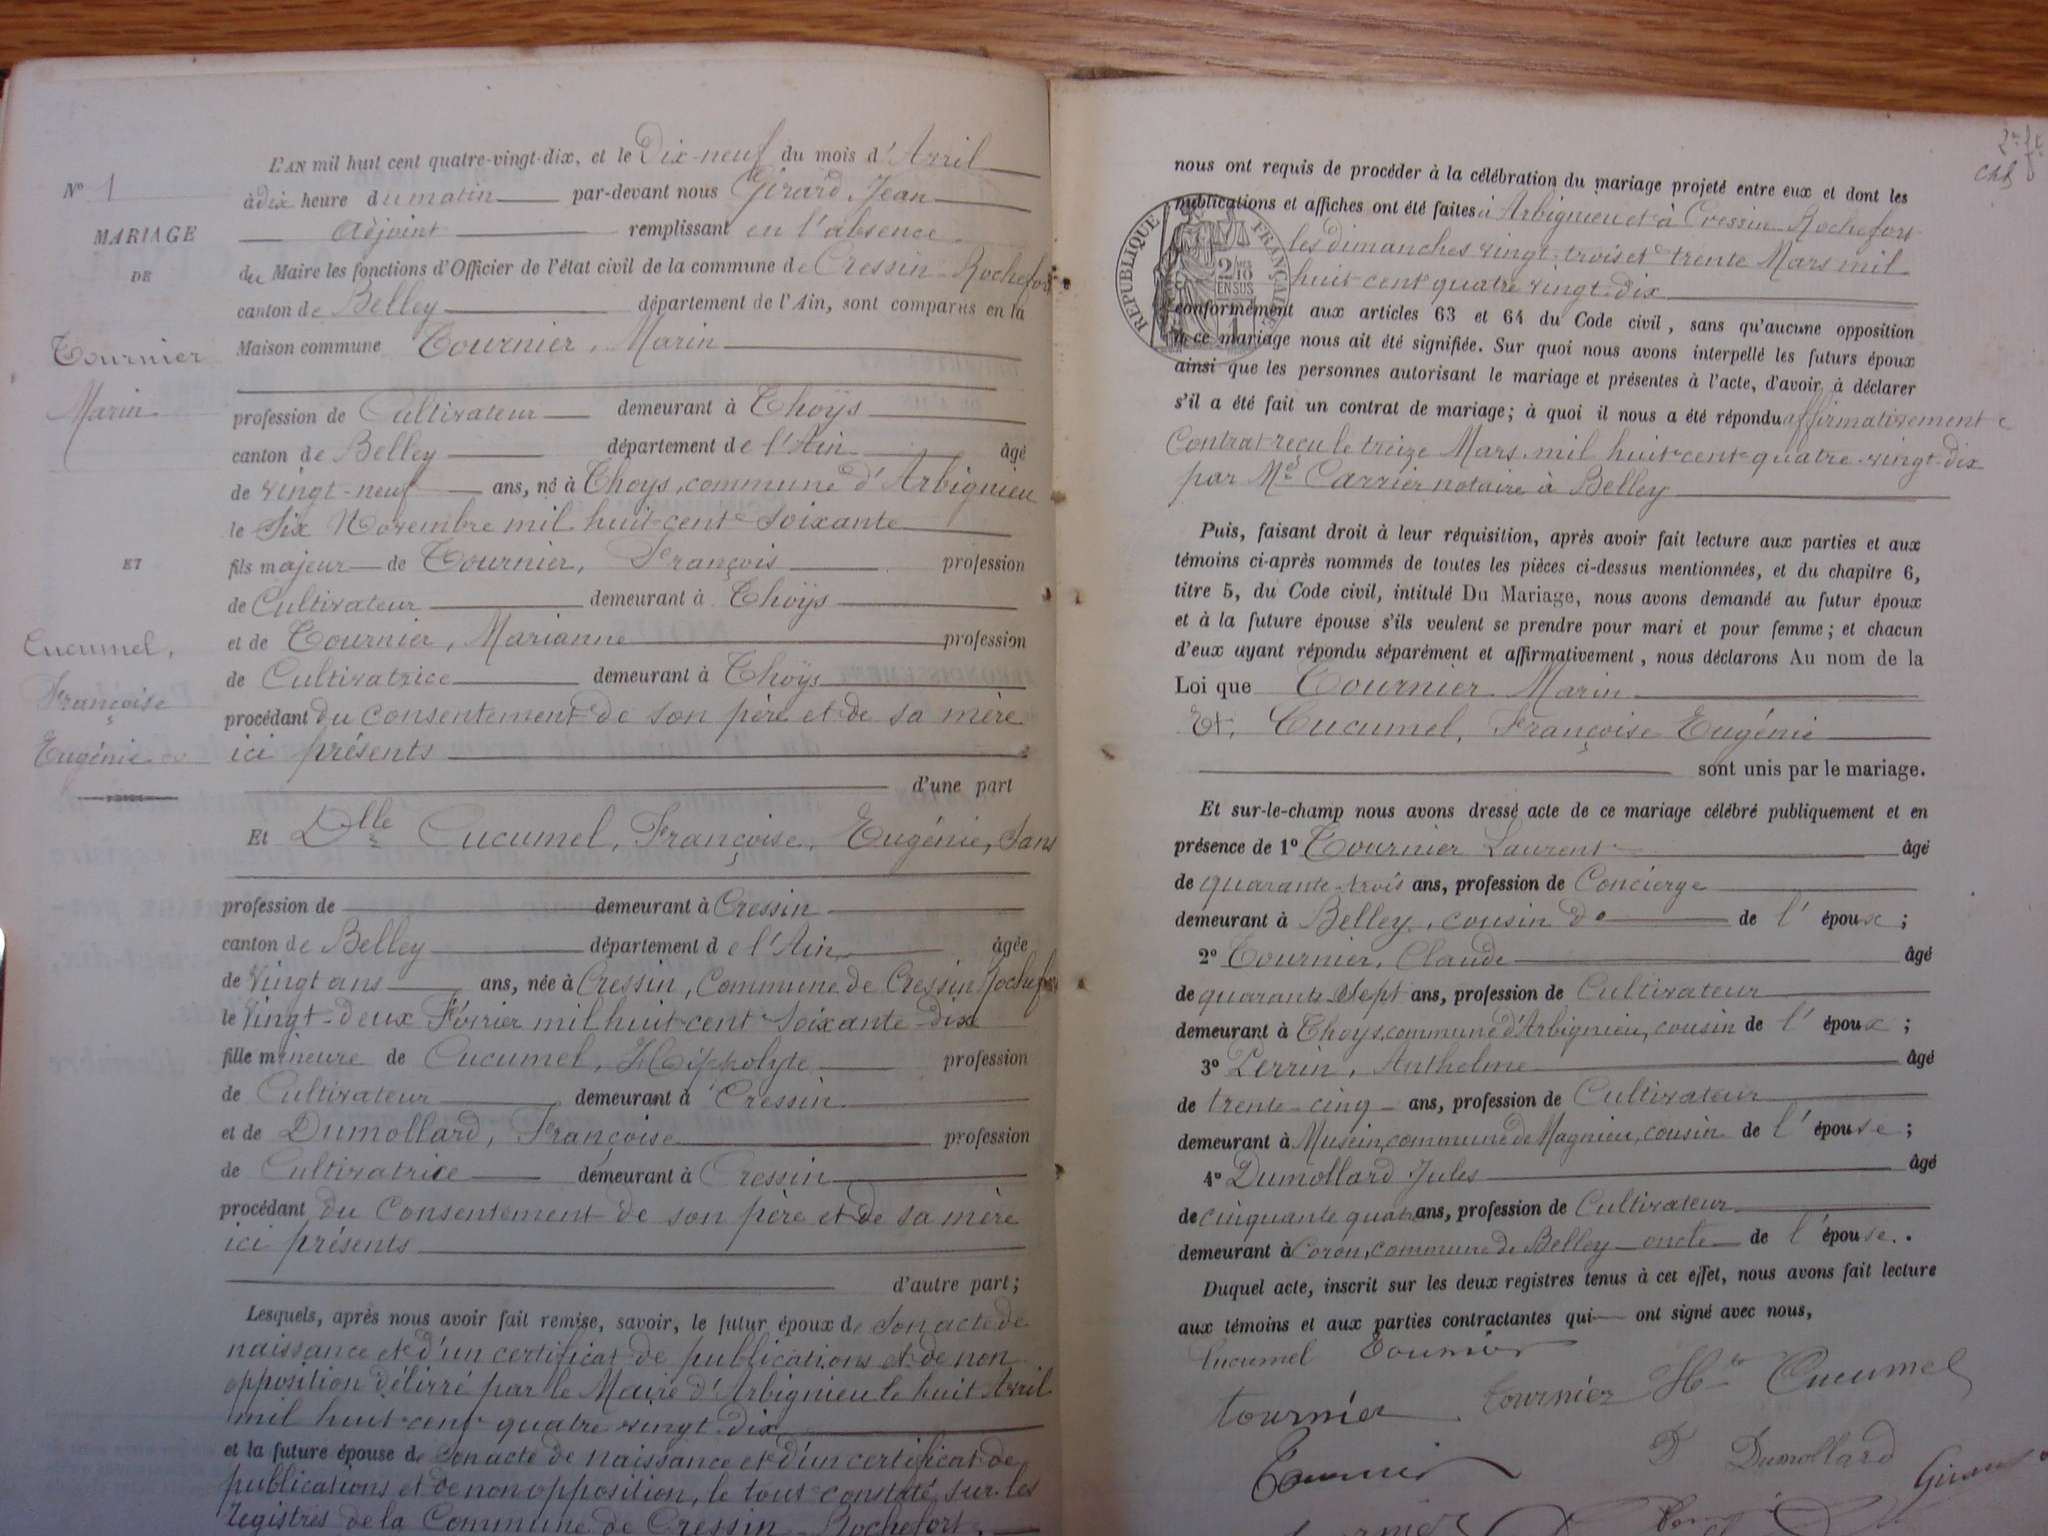 L'AN mil huit cent quatre-vingt-dix, et le Dix-neuf du mois d'Avril
N° 1
à dix heure du matin par-devant nous Girard, Jean
MARIAGE
DE
Tournier
Marin
ET
Cucumel,
Françoise
Eugénie
Adjoint remplissant en l'absence
du Maire les fonctions d'Officier de l'état civil de la commune de Cressin-Rochefort
canton de Belley département de l'Ain, sont comparus en la
Maison commune Tournier, Marin
profession de Cultivateur demeurant à Thoÿs
canton de Belley département de l'Ain âgé
de vingt-neuf ans, né à Thoys, commune d'Arbignieu
le Six Novembre mil huit-cent-soixante
fils majeur de Tournier, François profession
de Cultivateur demeurant à Thoÿs
et de Tournier, Marianne profession
de Cultivatrice demeurant à Thoÿs
procédant du consentement de son père et de sa mère
ici présents
d'une part
Et Dlle Cucumel, Françoise, Eugénie, Sans
profession de demeurant à Cressin
canton de Belley département de l'Ain âgée
de Vingt ans ans, née à Cressin, Commune de Cressin Rochefort
le Vingt-deux Février mil huit cent Soixante-dix
fille mineure de Cucumel, Hippolyte profession
de Cultivateur demeurant à Cressin
et de Dumollard, Françoise profession
de Cultivatrice demeurant à Cressin
procédant du Consentement de son père et de sa mère
ici présents
d'autre part;
Lesquels, après nous avoir fait remise, savoir, le futur époux de Son acte de
naissance et d'un certificat de publications et de non
opposition délivré par le Maire d'Arbignieu le huit Avril
mil huit cent quatre vingt dix
et la future épouse de Son acte de naissance et d'un certificat de
publications et de non opposition, le tout constaté sur les
registres de la Commune de Cressin-Rochefort.
nous ont requis de procéder à la célébration du mariage projeté entre eux et dont les
publications et affiches ont été faites à Arbignieu et à Cressin-Rochefort
les dimanches vingt-trois et trente Mars mil
huit cent quatre vingt-dix
RÉPUBLIQUE FRANÇAISE
2/10
EN SUS
conformément aux articles 63 et 64 du Code civil, sans qu'aucune opposition
à ce mariage nous ait été signifiée. Sur quoi nous avons interpellé les futurs époux
ainsi que les personnes autorisant le mariage et présentes à l'acte, d'avoir à déclarer
s'il a été fait un contrat de mariage; à quoi il nous a été répondu affirmativement
Contrat reçu le treize Mars mil huit cent quatre-vingt-dix
par Me Carrier notaire à Belley
Puis, faisant droit à leur réquisition, après avoir fait lecture aux parties et aux
témoins ci-après nommés de toutes les pièces ci-dessus mentionnées, et du chapitre 6,
titre 5, du Code civil, intitulé Du Mariage, nous avons demandé au futur époux
et à la future épouse s'ils veulent se prendre pour mari et pour femme; et chacun
d'eux ayant répondu séparément et affirmativement, nous déclarons Au nom de la
Loi que Tournier Marin
Et, Cucumel, Françoise Eugénie
sont unis par le mariage.
Et sur-le-champ nous avons dressé acte de ce mariage célébré publiquement et en
présence de 1° Tournier Laurent âgé
de quarante-trois ans, profession de Concierge
demeurant à Belley, cousin de de l'époux;
2° Tournier, Claude âgé
de quarante-Sept ans, profession de Cultivateur
demeurant à Thoys, commune d'Arbignieu, cousin de l'époux;
3° Perrin, Anthelme âgé
de trente-cinq ans, profession de Cultivateur
demeurant à Musein, commune de Magnieu, cousin de l'épouse;
4° Dumollard Jules âgé
de cinquante quatre ans, profession de Cultivateur
demeurant à Coron, commune de Belley oncle de l'épouse.
Duquel acte, inscrit sur les deux registres tenus à cet effet, nous avons fait lecture
aux témoins et aux parties contractantes qui ont signé avec nous,
Cucumel Tournier
tournier tournier Hte Cucumel
Tournier F Dumollard